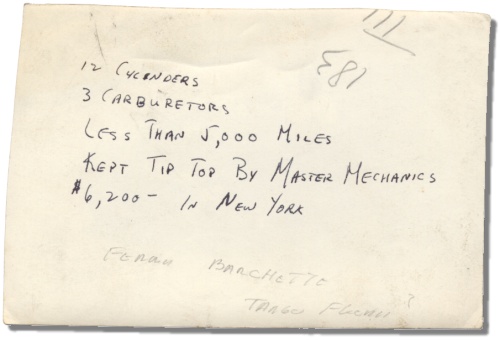 III
E81
12 CYLENDERS
3 CARBURETORS
LESS THAN 5,000 MILES
KEPT TIP TOP BY MASTER MECHANICS
$6,200- IN NEW YORK
BARCHETTE